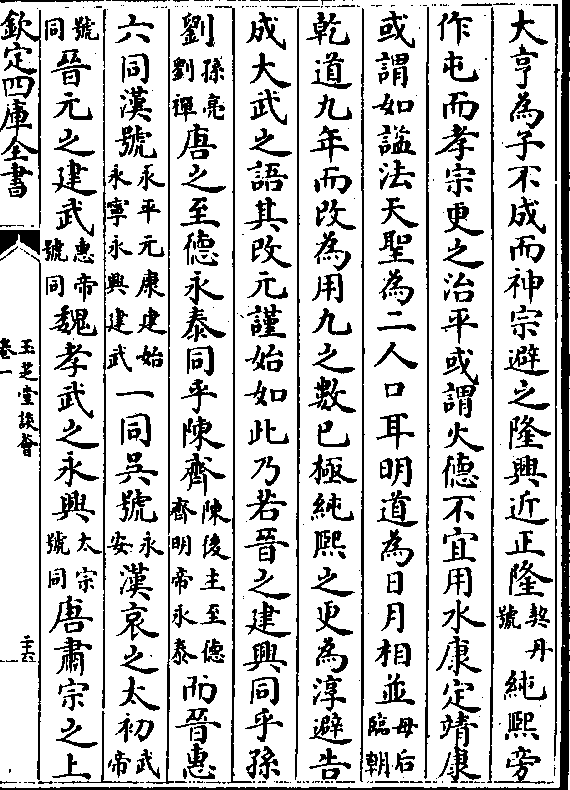 大亨為子不成而神宗避之隆興近正隆契丹號純熙旁
作屯而孝宗更之治平或謂火德不宜用水康定靖康
或謂如諡法天聖為二人口耳明道為日月相並母后臨朝
乾道九年而改為用九之數已極純熙之更為淳避告
成大武之語其改元謹始如此乃若晉之建興同乎孫
劉孫亮劉禪唐之至德永泰同乎陳齊陳後主至德齊明帝永泰而晉惠
六同漢號永平元康建始永寧永興建武一同吳號永安漢哀之太初武帝
號同晉元之建武惠帝號同魏孝武之永興太宗號同唐肅宗之上
欽定四庫全書
玉芝堂談薈
卷一
二十六